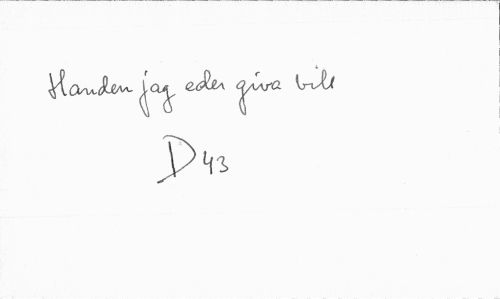 Handen jag eder giva vill
D 43